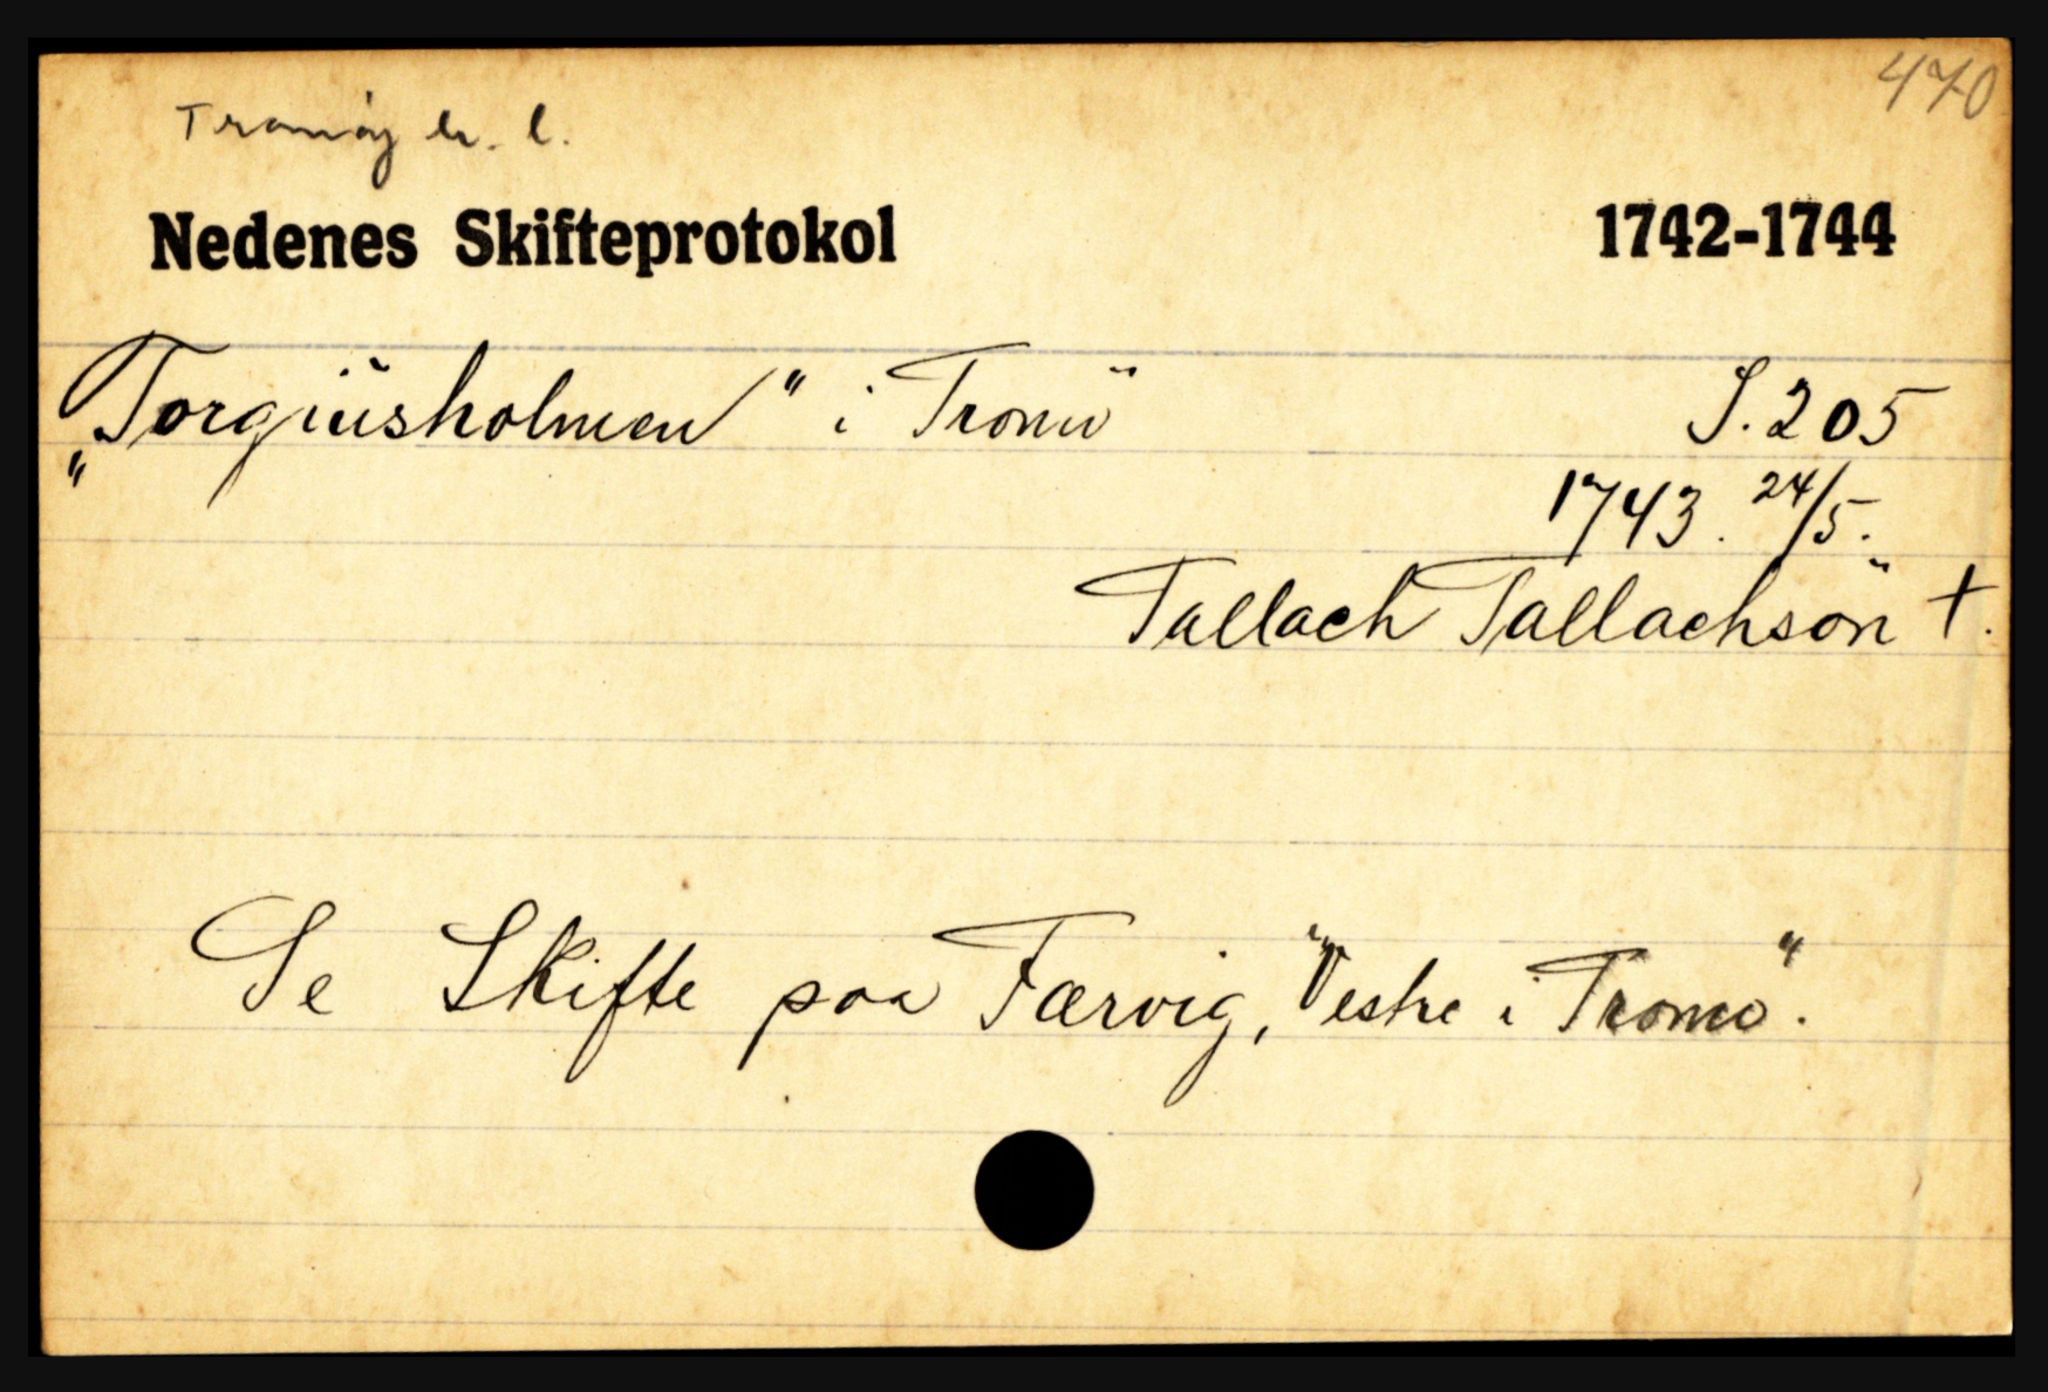 470
Tromøy u. l.
Nedenes Skifteprotokol 1742-1744
„Torgiüsholmen" i Tromö S. 205
1743. 24/5.
Tallach Tallachsön †.
Se Skifte paa Færvig, "Vestre i Tromö".